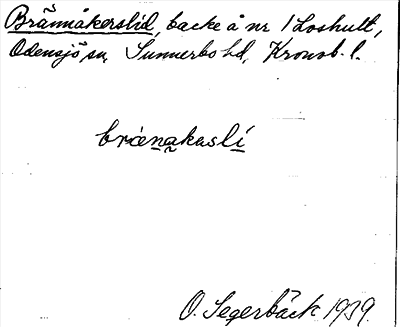 Brännåkerslid, backe å nr 1 Loshult,
Odensjö sn, Sunnerbo hd, Kronob. l.
brænakaslí
O. Segerbäck 1939.